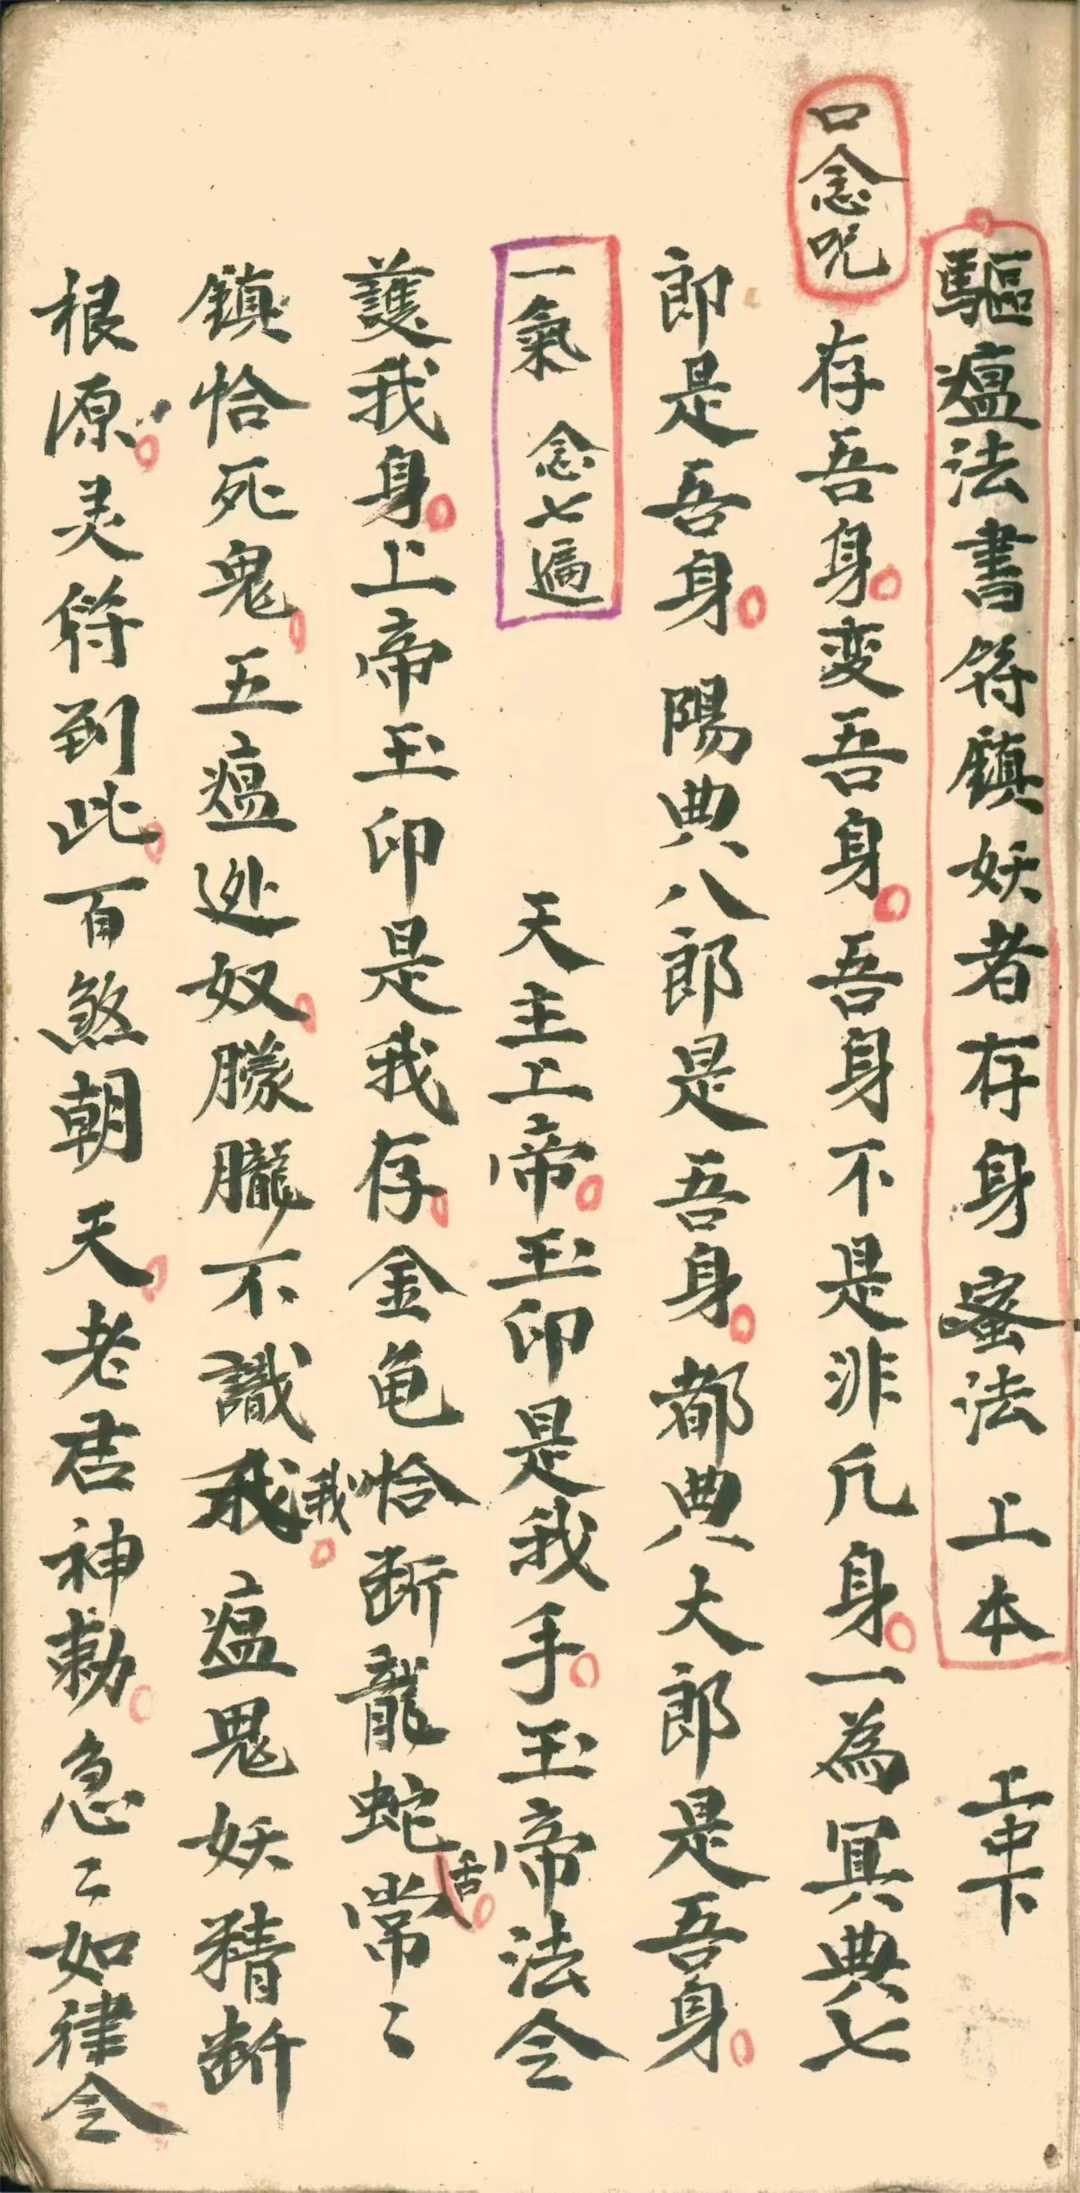 驅瘟法書符鎮妖者存身蜜法 上本 上中下
口念呪 存吾身変吾身吾身不是非凢身一為冥典七
郎是吾身 陽典八郎是吾身都典大郎是吾身
一氣 念七遍 天主上帝玉印是我手玉帝法令
護我身上帝玉印是我存金龟恰断龍蛇舌常〻
鎮恰死鬼五瘟迯奴朦朧不識我我瘟鬼妖精断
根源灵符到此百煞朝天老君神勅急〻如律令